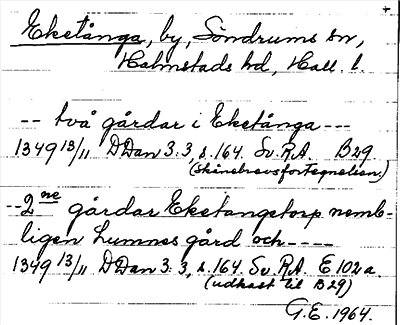 Eketånga, by, Söndrums sn,
Halmstads hd, Hall. l.
-- två gårdar i Eketånga ---
1349 13/11 DDan 3.3, s. 164. Sv. R.A. B29
(Skånebrevsfortegnelsen)
--2ne gårdar Eketangetorp nemb-
ligen Lumnes gård och ----
1349 13/11 DDan 3.3, s. 164. Sv. R.A. E 102a.
(udkast til B29)
G.E. 1964.